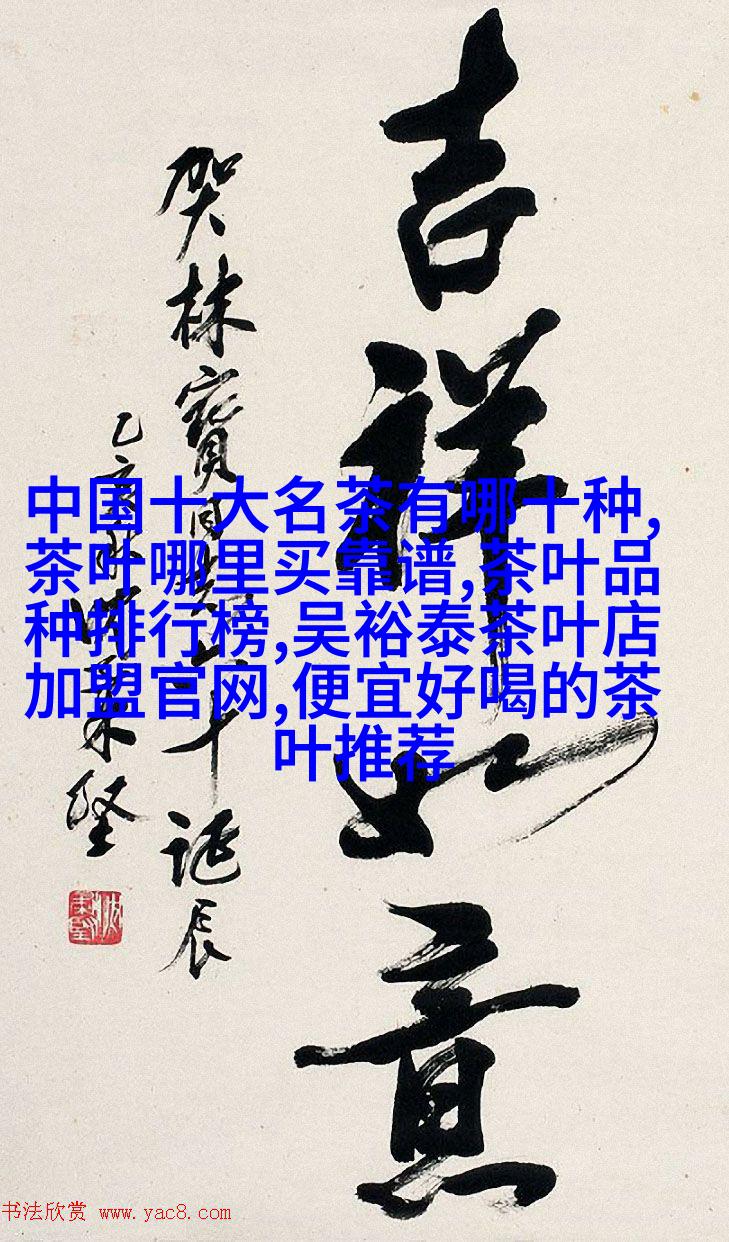 吉祥如意
贺林宝同志六十诞辰
中国十大名茶有哪十种,
茶叶哪里买靠谱,茶叶品
种排行榜,吴裕泰茶叶店
加盟官网,便宜好喝的茶
叶推荐
书法欣赏 www.yac8.com